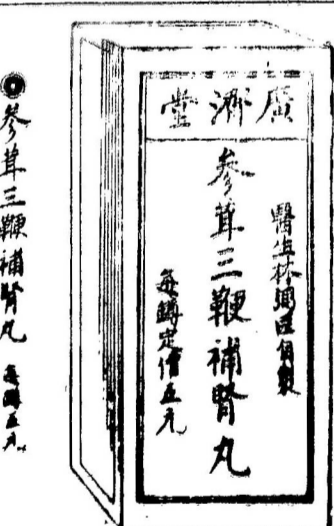 廣濟堂
醫生林弼臣自製
參茸三鞭補腎丸
每罇定價五元
參茸三鞭補腎丸 每罇五元